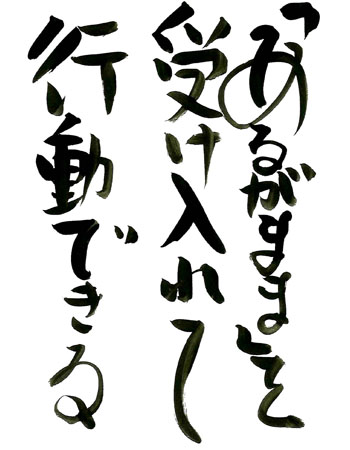 「あるがまま」を
受け入れて
行動できる